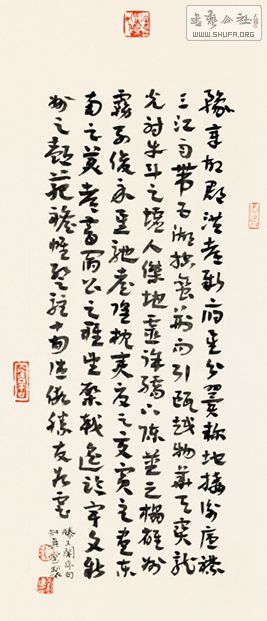 书艺公社
WWW.SHUFA.ORG
豫章故郡洪都新府星分翼軫地接衡廬襟
三江而帶五湖控蠻荊而引甌越物華天寶龍
光射牛斗之墟人傑地靈徐孺下陳蕃之榻雄州
霧列俊采星馳臺隍枕夷夏之交賓主盡東
南之美都督閻公之雅望棨戟遙臨宇文新
州之懿範襜帷暫駐十旬休假勝友如雲
滕王閣序句